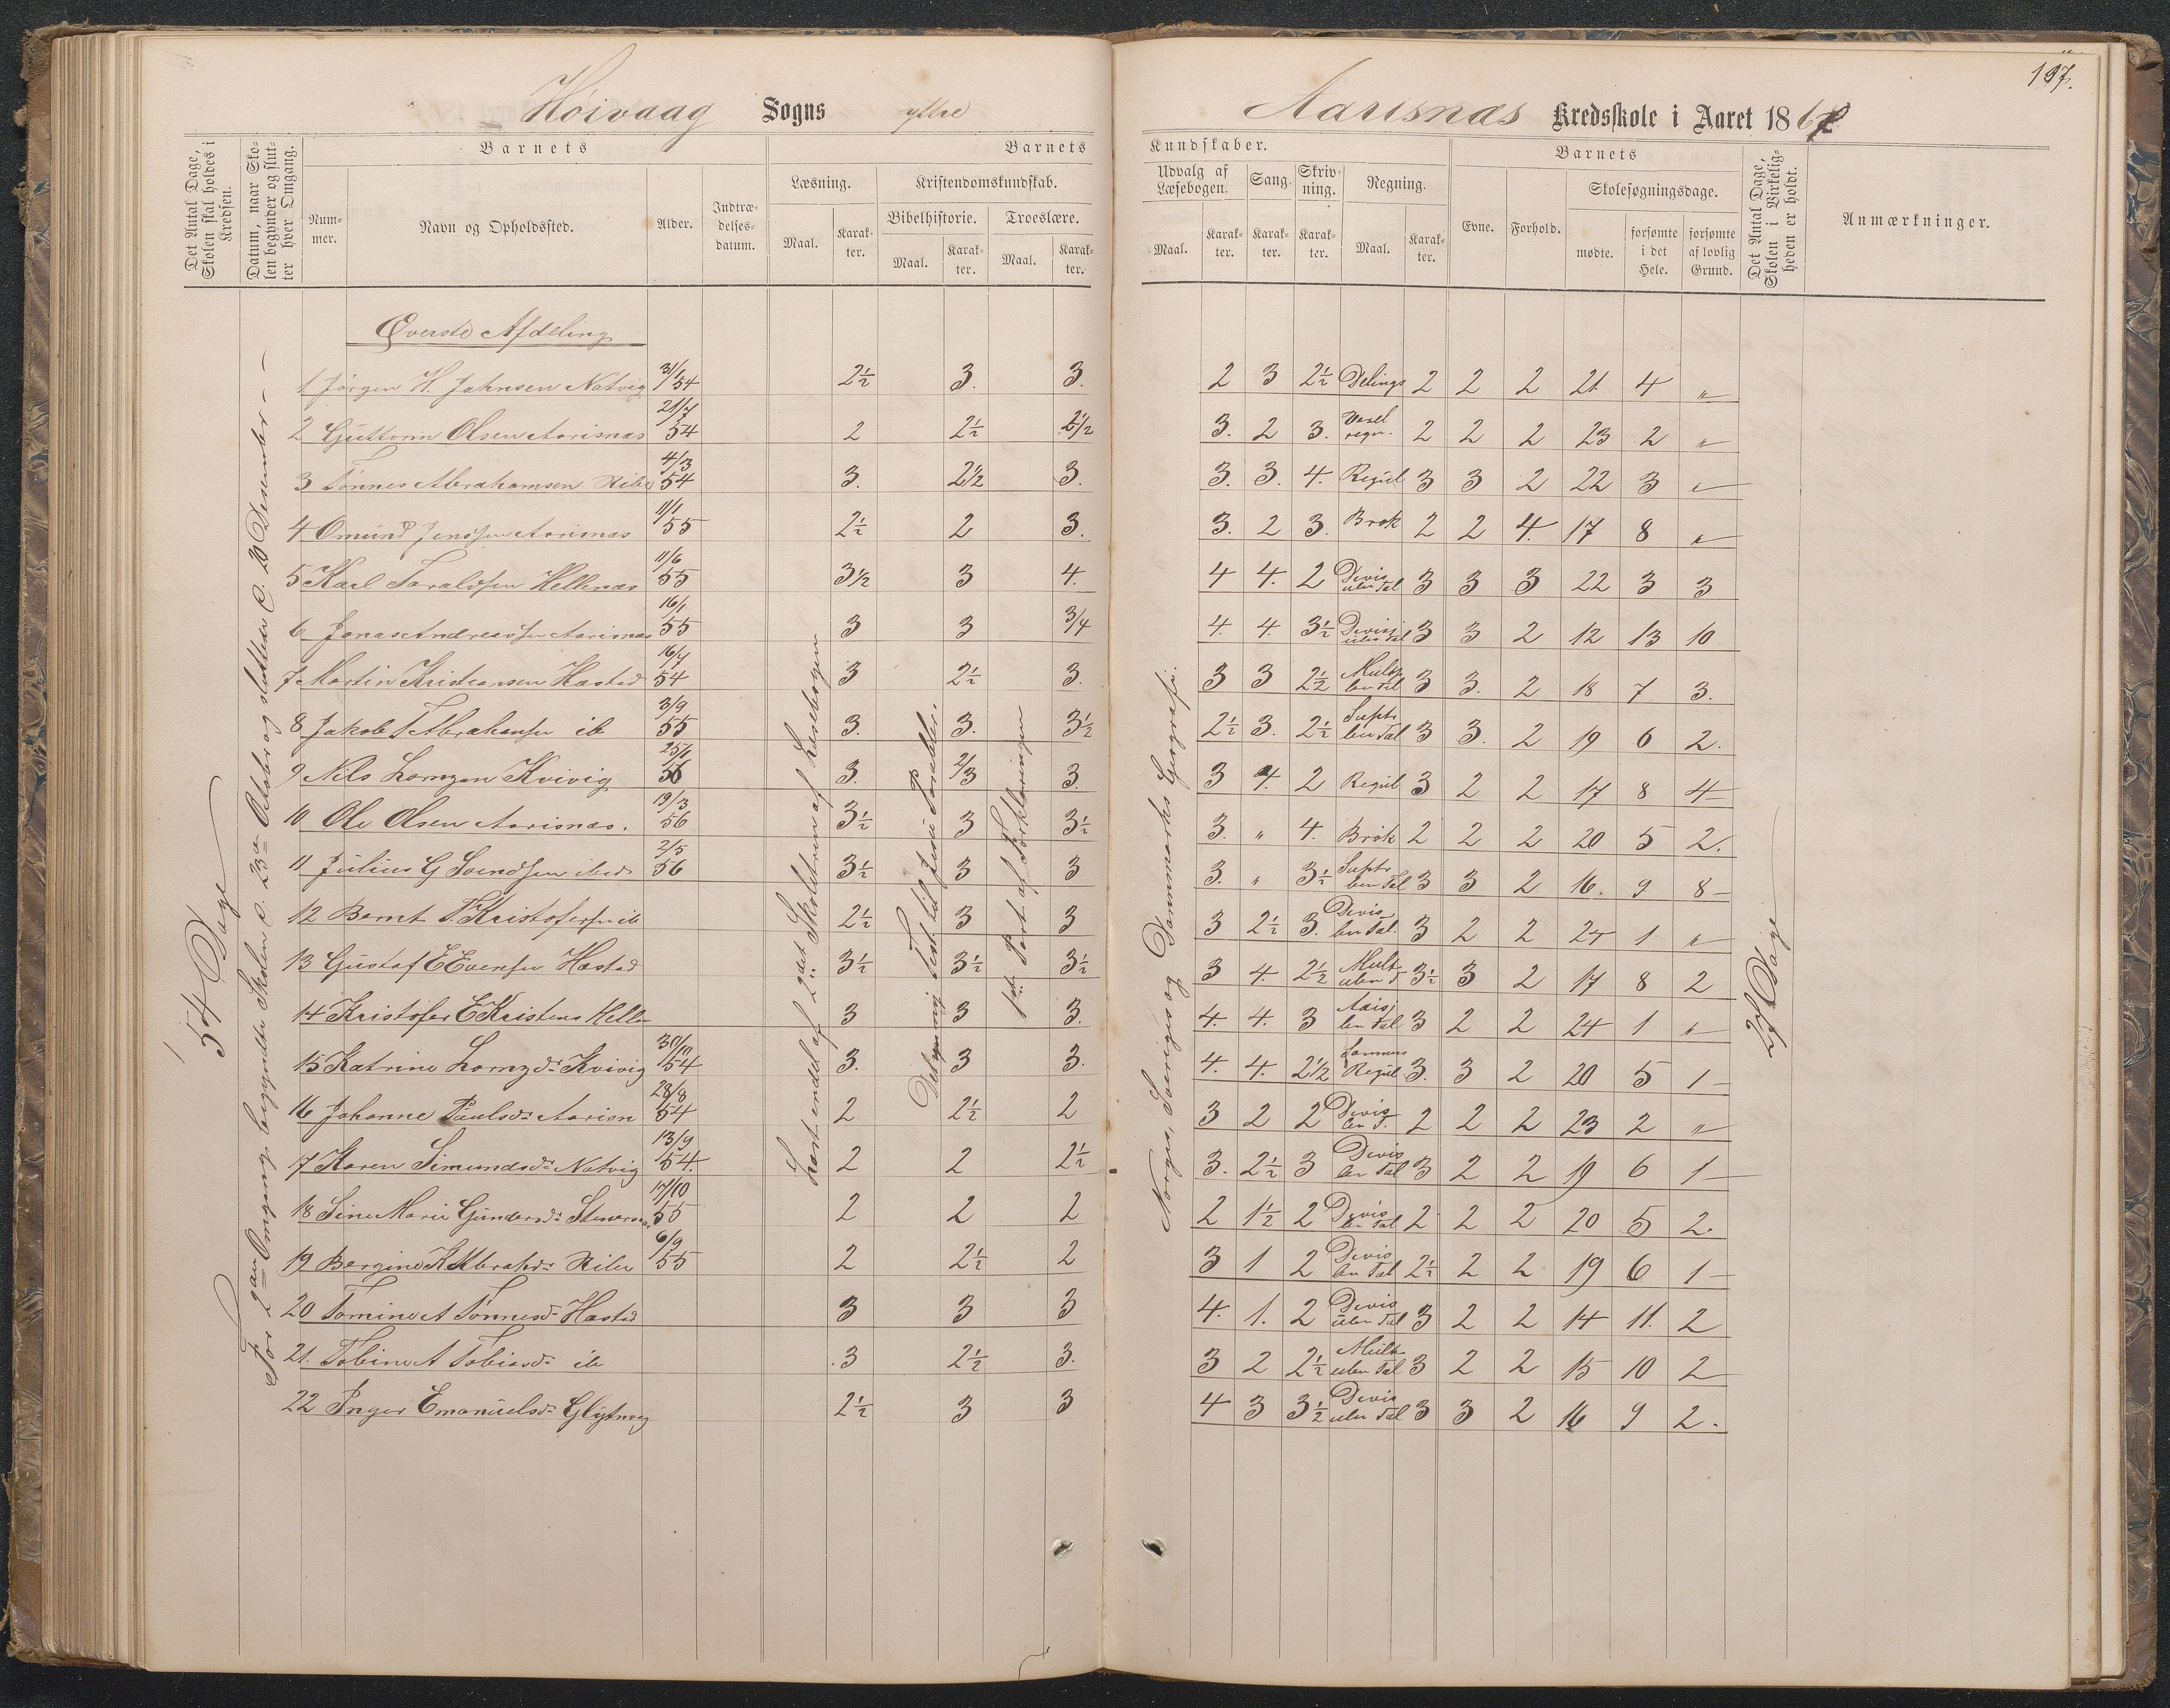 197.
Höivaag Sogns ytre Aarisnæs Kredsskole i Aaret 1867
Det Antal Dage, Skolen skal holdes i Kredsen.
Datum, naar Skolen begynder og slutter hver Omgang.
Barnets
Nummer.
Navn og Opholdssted.
Alder.
Indtrædelsesdatum.
Barnets
Læsning.
Maal.
Karakter.
Kristendomskundskab.
Bibelhistorie.
Maal.
Karakter.
Troeslære.
Maal.
Karakter.
Kundskaber.
Udvalg af Læsebogen.
Maal.
Karakter.
Sang.
Karakter.
Skrivning.
Karakter.
Regning.
Maal.
Karakter.
Barnets
Evne.
Forhold.
Skolesøgningsdage.
mødte.
forsømte i det Hele.
forsømte af lovlig Grund.
Det Antal Dage, Skolen i Virkeligheden er holdt.
Anmærkninger.
54 Dage
For 2den Omgang begyndte Skolen d. 23de Octob og sluttede d. 20 Desember
Læst endel af 2det Skoletrin af Læsebogen
Det ny Test. til Jesu Parabler.
1ste Part af Forklaringen
Norges, Sveriges og Danmarks Geografi.
27 Dage
Øverste Afdeling
1 Jörgen H. Jahnsen Natvig 31/1 54 2½ 3. 3. 2 3 2½ Delings 2 2 2 21. 4 „
2 Guttorm Olsen Aarisnæs 21/7 54 2 2½ 2½ 3. 2 3. regn. 2 2 2 23 2 „
3 Tönnes Abrahamsen Ribe 4/3 54 3. 2½ 3. 3. 3. 4. Regul 3 3 2 22 3 „
4 Omund Jenssen Aarisnæs 1/1 55 2½ 2 3. 3. 2 3. Brøk 2 2 4. 17 8 „
5 Karl Taraldsen Hellenæs 11/6 55 3½ 3 4. 4 4. 2 Devis uben Tal 3 3 3 22 3 3
6 Jonas Andreassen Aarisnæs 16/1 55 3 3 3/4 4. 4. 3½ Devisj uben Tal 3 3 2 12 13 10
7 Martin Kristiansen Hæstad 16/7 54 3 2½ 3. 3 3 2½ Mult ben Tal 3 3. 2 18 7 3.
8 Jakob T Abrahamsen ib 3/9 55 3. 3. 3½ 2½ 3. 2½ Suptr ben Tal 3 3. 2 19 6 2.
9 Nils Lornzen Kvivig 25/1 56 3. 2/3 3. 3 4. 2 Regul 3 2 2 17 8 4
10 Ole Olsen Aarisnæs. 19/3 56 3½ 3 3½ 3. „ 4. Brøk 2 2 2 20 5 2.
11 Julius G Svendsen ibid 2/5 56 3½ 3 3 3. „ 3½ Suptr ben Tal 3 3 2 16. 9 8
12 Bernt V. Kristofersen ib 2½ 3 3 3 2½ 3. Devis ben Tal. 3 2 2 24 1 „
13 Gustaf E Evensen Hæstad 3½ 3½ 3½ 3 4. 2½ Mult uben T 3½ 3 2 17 8 2
14 Kristofer E Kristens Helle 3 3 3. 4. 4. 3 ben Tal 3 2 2 24 1 „
15 Katrine Lornzdr Kvivig 30/10 54 3. 3 3. 4. 4. 2½ Regul 3. 3 2 20 5 1
16 Johanne Paulsdr Aarisn 28/8 54 2 2½ 2 3 2 2 Devis ben T. 2 2 2 23 2 „
17 Karen Simundsdr Natvig 13/9 54. 2 2 2½ 3. 2½ 3 Devis ben Tal 3 2 2 19 6 1
18 Sine Marie Gundersdr Stenernæs 17/10 55 2 2 2 2 1½ 2 Devis ben Tal 2 2 2 20 5 2.
19 Bergine K Abrahdr Ribe 6/9 55 2 2½ 2 3 1 2 Devis ben Tal 2½ 2 2 19 6 1
20 Tomine A Tönnesdr Hæstad 3 3 3 4. 1. 2 Devis uben Tal 3 2 2 14 11. 2
21. Tobine A Tobiasdr ib 3 2½ 3. 3 2 2½ Mult uben Tal 3 2 2 15 10 2
22 Inger Emanuelsdr Glytnæs 2½ 3 3 4 3 3½ Devis uben Tal 3 3 2 16 9 2.